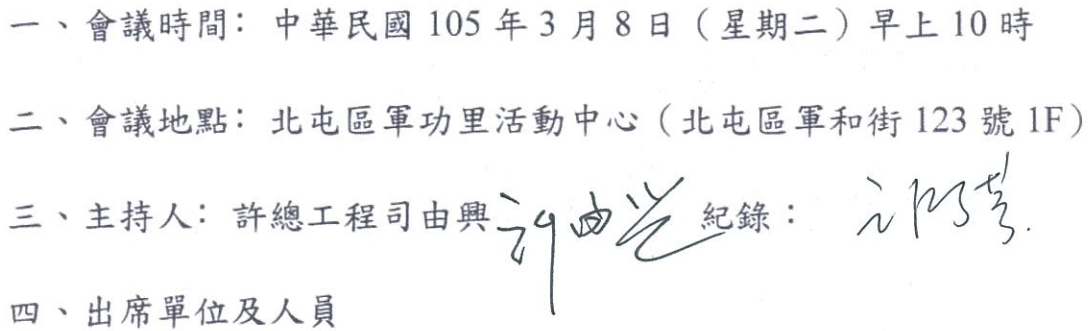 一、會議時間：中華民國 105 年 3 月 8 日（星期二）早上 10 時
二、會議地點：北屯區軍功里活動中心（北屯區軍和街 123 號 1F）
三、主持人：許總工程司由興 許由興 紀錄：
四、出席單位及人員